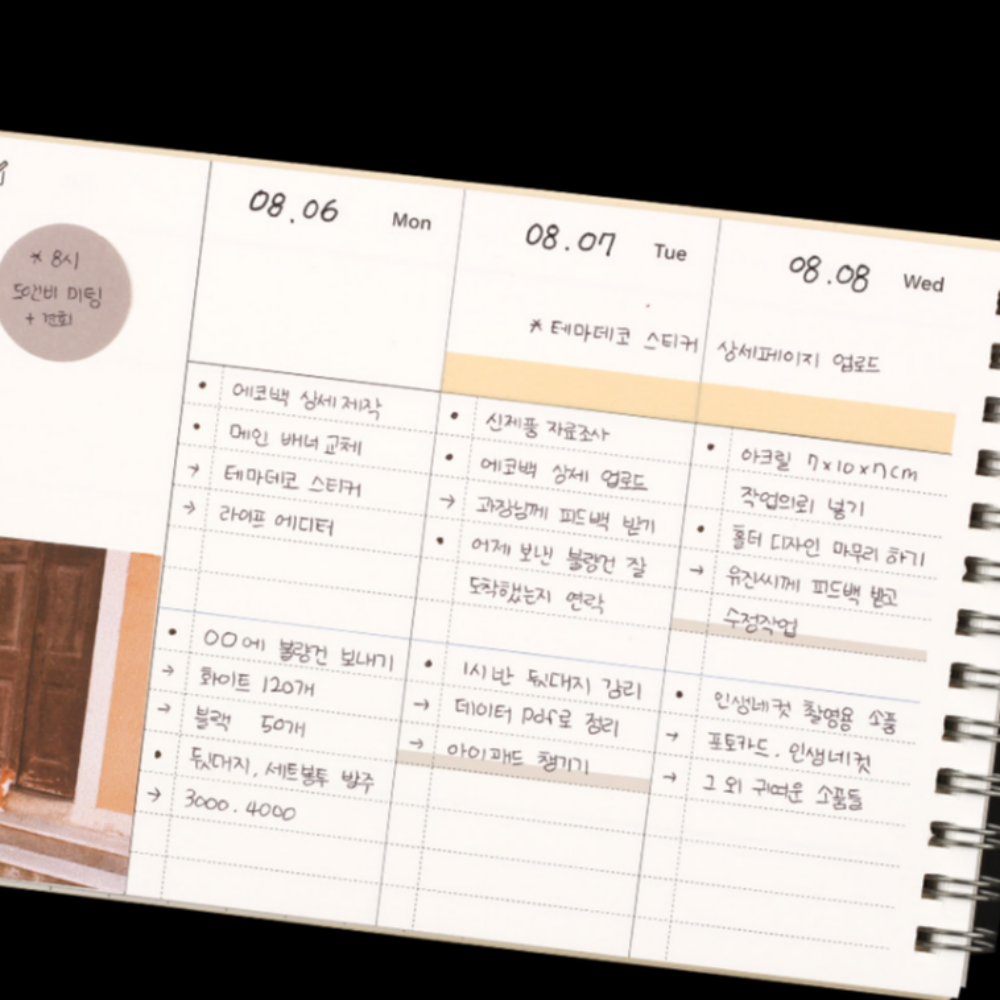 * 8시
50인비 미팅
+ 전회
08.06 Mon
• 에코백 상세 제작
• 메인 배너 교체
→ 테마데코 스티커
→ 라이프 에디터
• 00에 불량건 보내기
→ 화이트 120개
→ 블랙 50개
• 뒷대지, 세트봉투 발주
→ 3000. 4000
08.07 Tue
* 테마데코 스티커 상세페이지 업로드
• 신제품 자료조사
• 에코백 상세 업로드
→ 과장님께 피드백 받기
• 어제 보낸 불량건 잘
도착했는지 연락
• 1시반 뒷대지 감리
→ 데이터 pdf로 정리
→ 아이패드 챙기기
08.08 Wed
• 아크릴 7x10x7cm
작업의뢰 넣기
• 홀더 디자인 마무리 하기
→ 유진씨께 피드백 받고
수정작업
• 인생네컷 촬영용 소품
→ 포토카드. 인생네컷
→ 그 외 귀여운 소품들